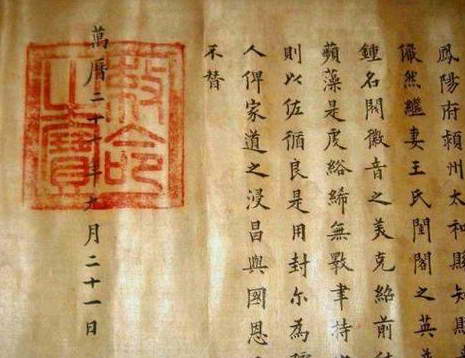 鳳陽府潁州太和縣知縣
儼然繼妻王氏閨閣之英
鍾名閥徽音之美克紹前
蘋藻是虔綌絺無斁聿持
則以佐循良是用封尔為孺
人俾家道之浸昌與國恩
不替
萬曆二十年九月二十一日
敕命之寶